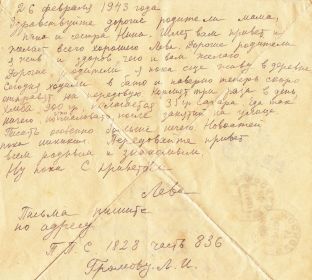 26 февраля 1943 года
Здравствуйте дорогие родители мама,
папа и сестра Нина. Шлет вам привет и
желает всего хорошего Лева. Дорогие родители
я жив и здоров, чего и вам желаю.
Дорогие родители я пока еще живу в деревне
Сегодня ходили в баню и наверно теперь скоро
отправят на передовую. Кормят три раза в день
хлеба 900 гр. 35 гр сахара, так
ничего, после занятий на улице
Писать особенно больше нечего. Новостей
пока никаких. Передавайте привет
всем родным и знакомым
Ну пока С приветом
Лева
Письма пишите
по адресу
П.П.С 1828 часть 836
Громову Л. И.